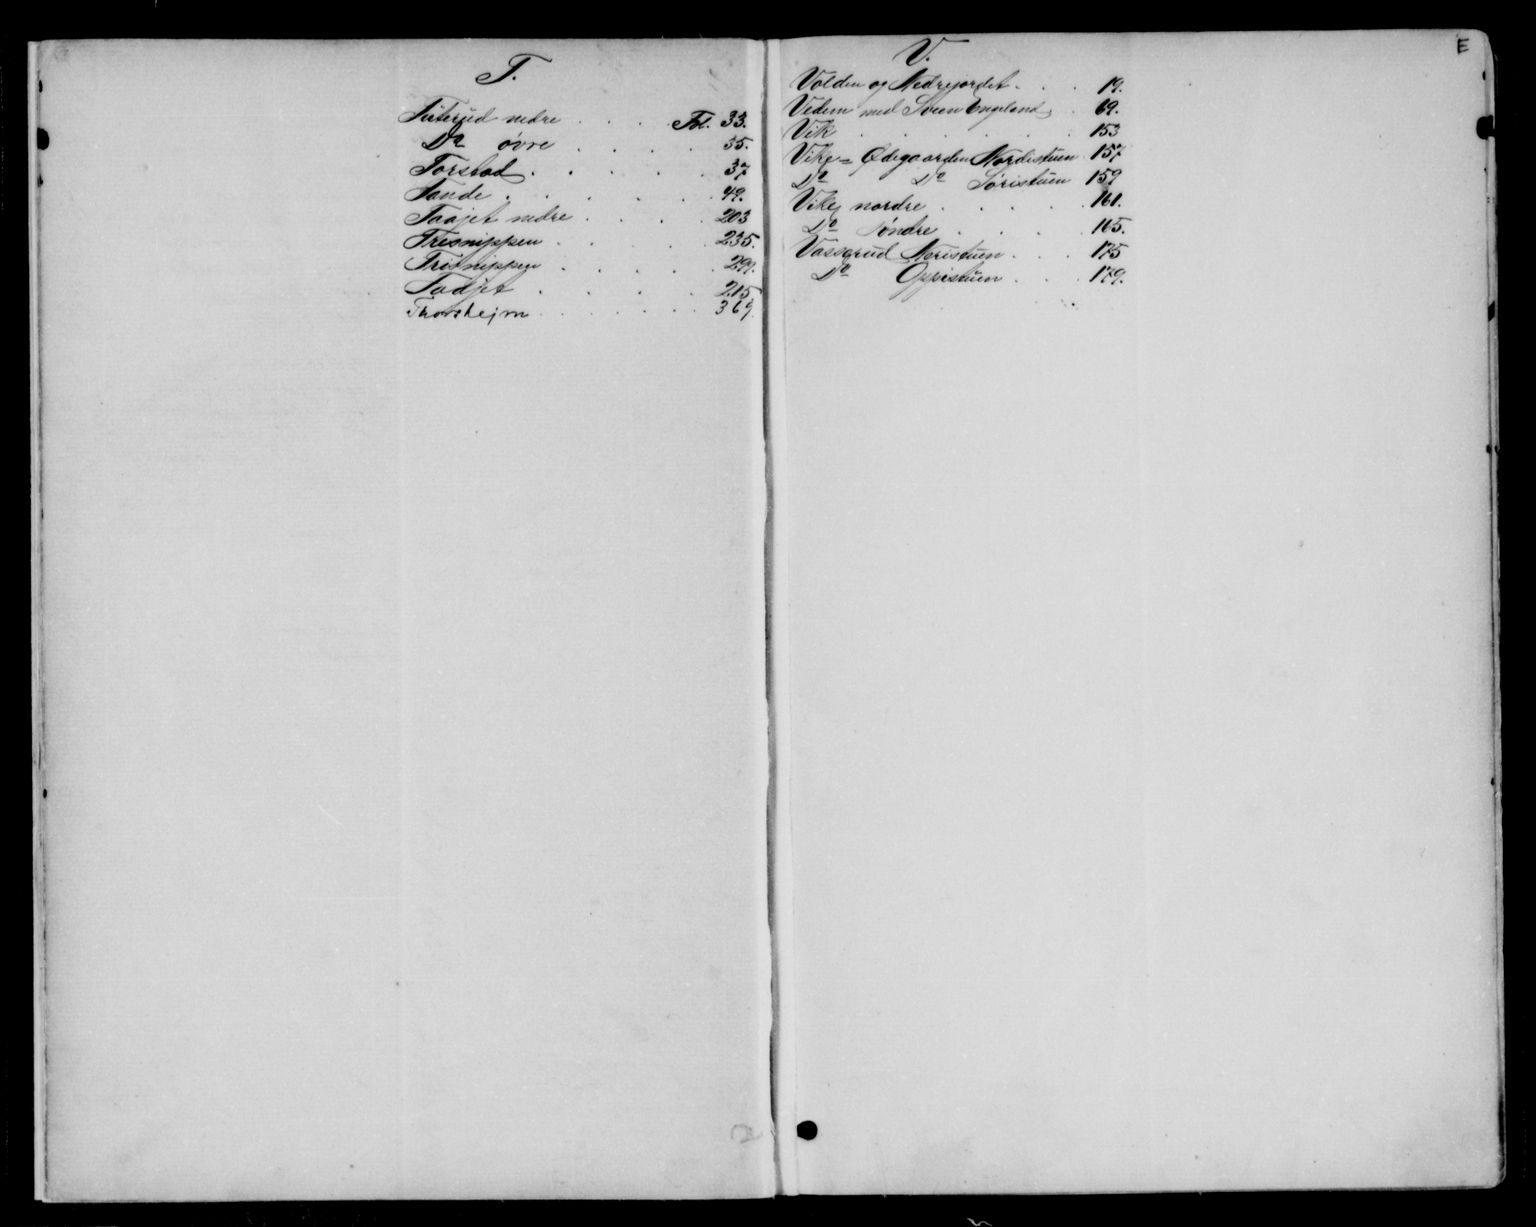 T.
Teterud nedre . . . . Fol. 33.
Do øvre . . . . 35.
Torstad . . . . . 37
Tande . . . . . . 49.
Taajet nedre . . . . 203
Tresnippen . . . . . 235.
Trisnippen . . . . . 299.
Taajet . . . . . 215
Thorshejm . . . . . . . . 369.
V.
Volden og Nedrejordet . . . 19.
Vedem med Sveen Engeland . . 69.
Vik . . . . . . . 153
Vike- Ødegaarden Nordistuen . 157
Do Do Søristuen 159
Vike nordre . . . . . 161.
Do søndre . . . . 165.
Vassrud Neristuen . . . 175
Do Oppistuen . . . 179.
E